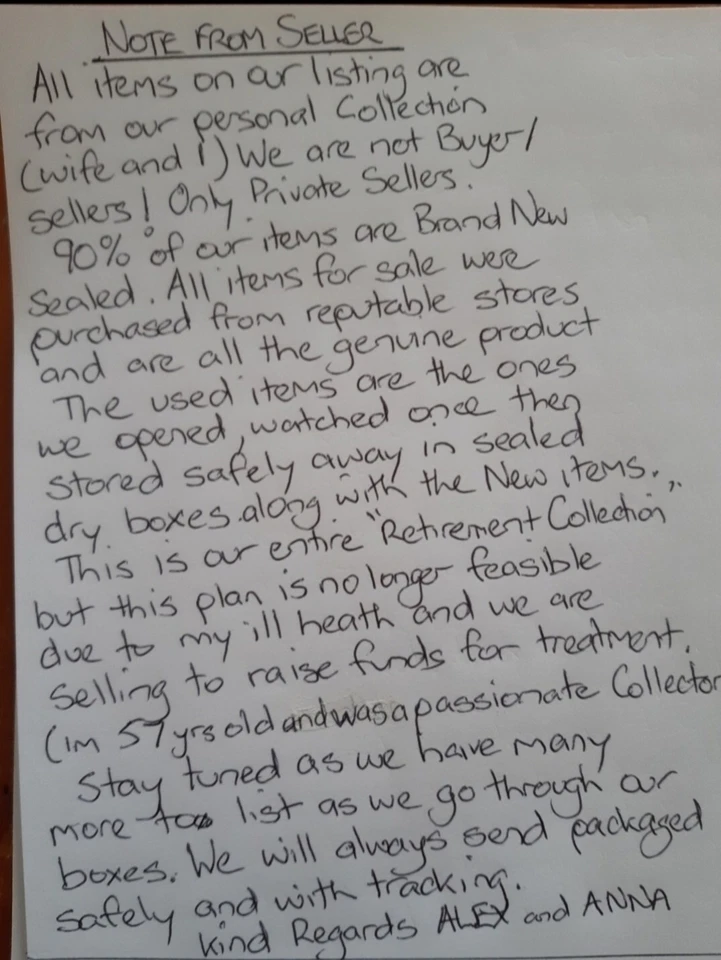 NOTE FROM SELLER
All items on our listing are
from our personal Collection
(wife and I) We are not Buyer/
sellers! Only Private Sellers.
90% of our items are Brand New
Sealed. All items for sale were
purchased from reputable stores
and are all the genuine product
The used items are the ones
we opened, watched once then
stored safely away in sealed
dry boxes along with the New items.
This is our entire "Retirement Collection"
but this plan is no longer feasible
due to my ill heath and we are
selling to raise funds for treatment.
(im 57yrs old and was a passionate Collector
Stay tuned as we have many
more to list as we go through our
boxes. We will always send packaged
safely and with tracking.
Kind Regards ALEX and ANNA